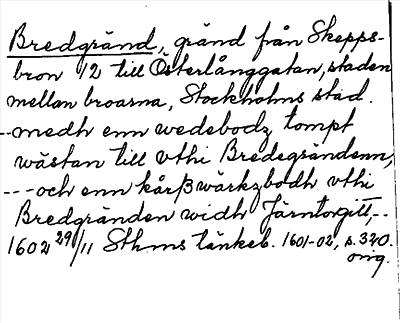 Bredgränd, gränd från Skepps-
bron 12 till Österlånggatan, staden
mellan broarna, Stockholms stad.
--medh enn wedebodz tompt
wästan till vthi Bredegrändenn,
---och enn kårßwärkzbodh vthi
Bredgränden widh Järntorgitt,--
1602 29/11 Sthms tänkeb. 1601-02, s. 320.
orig.